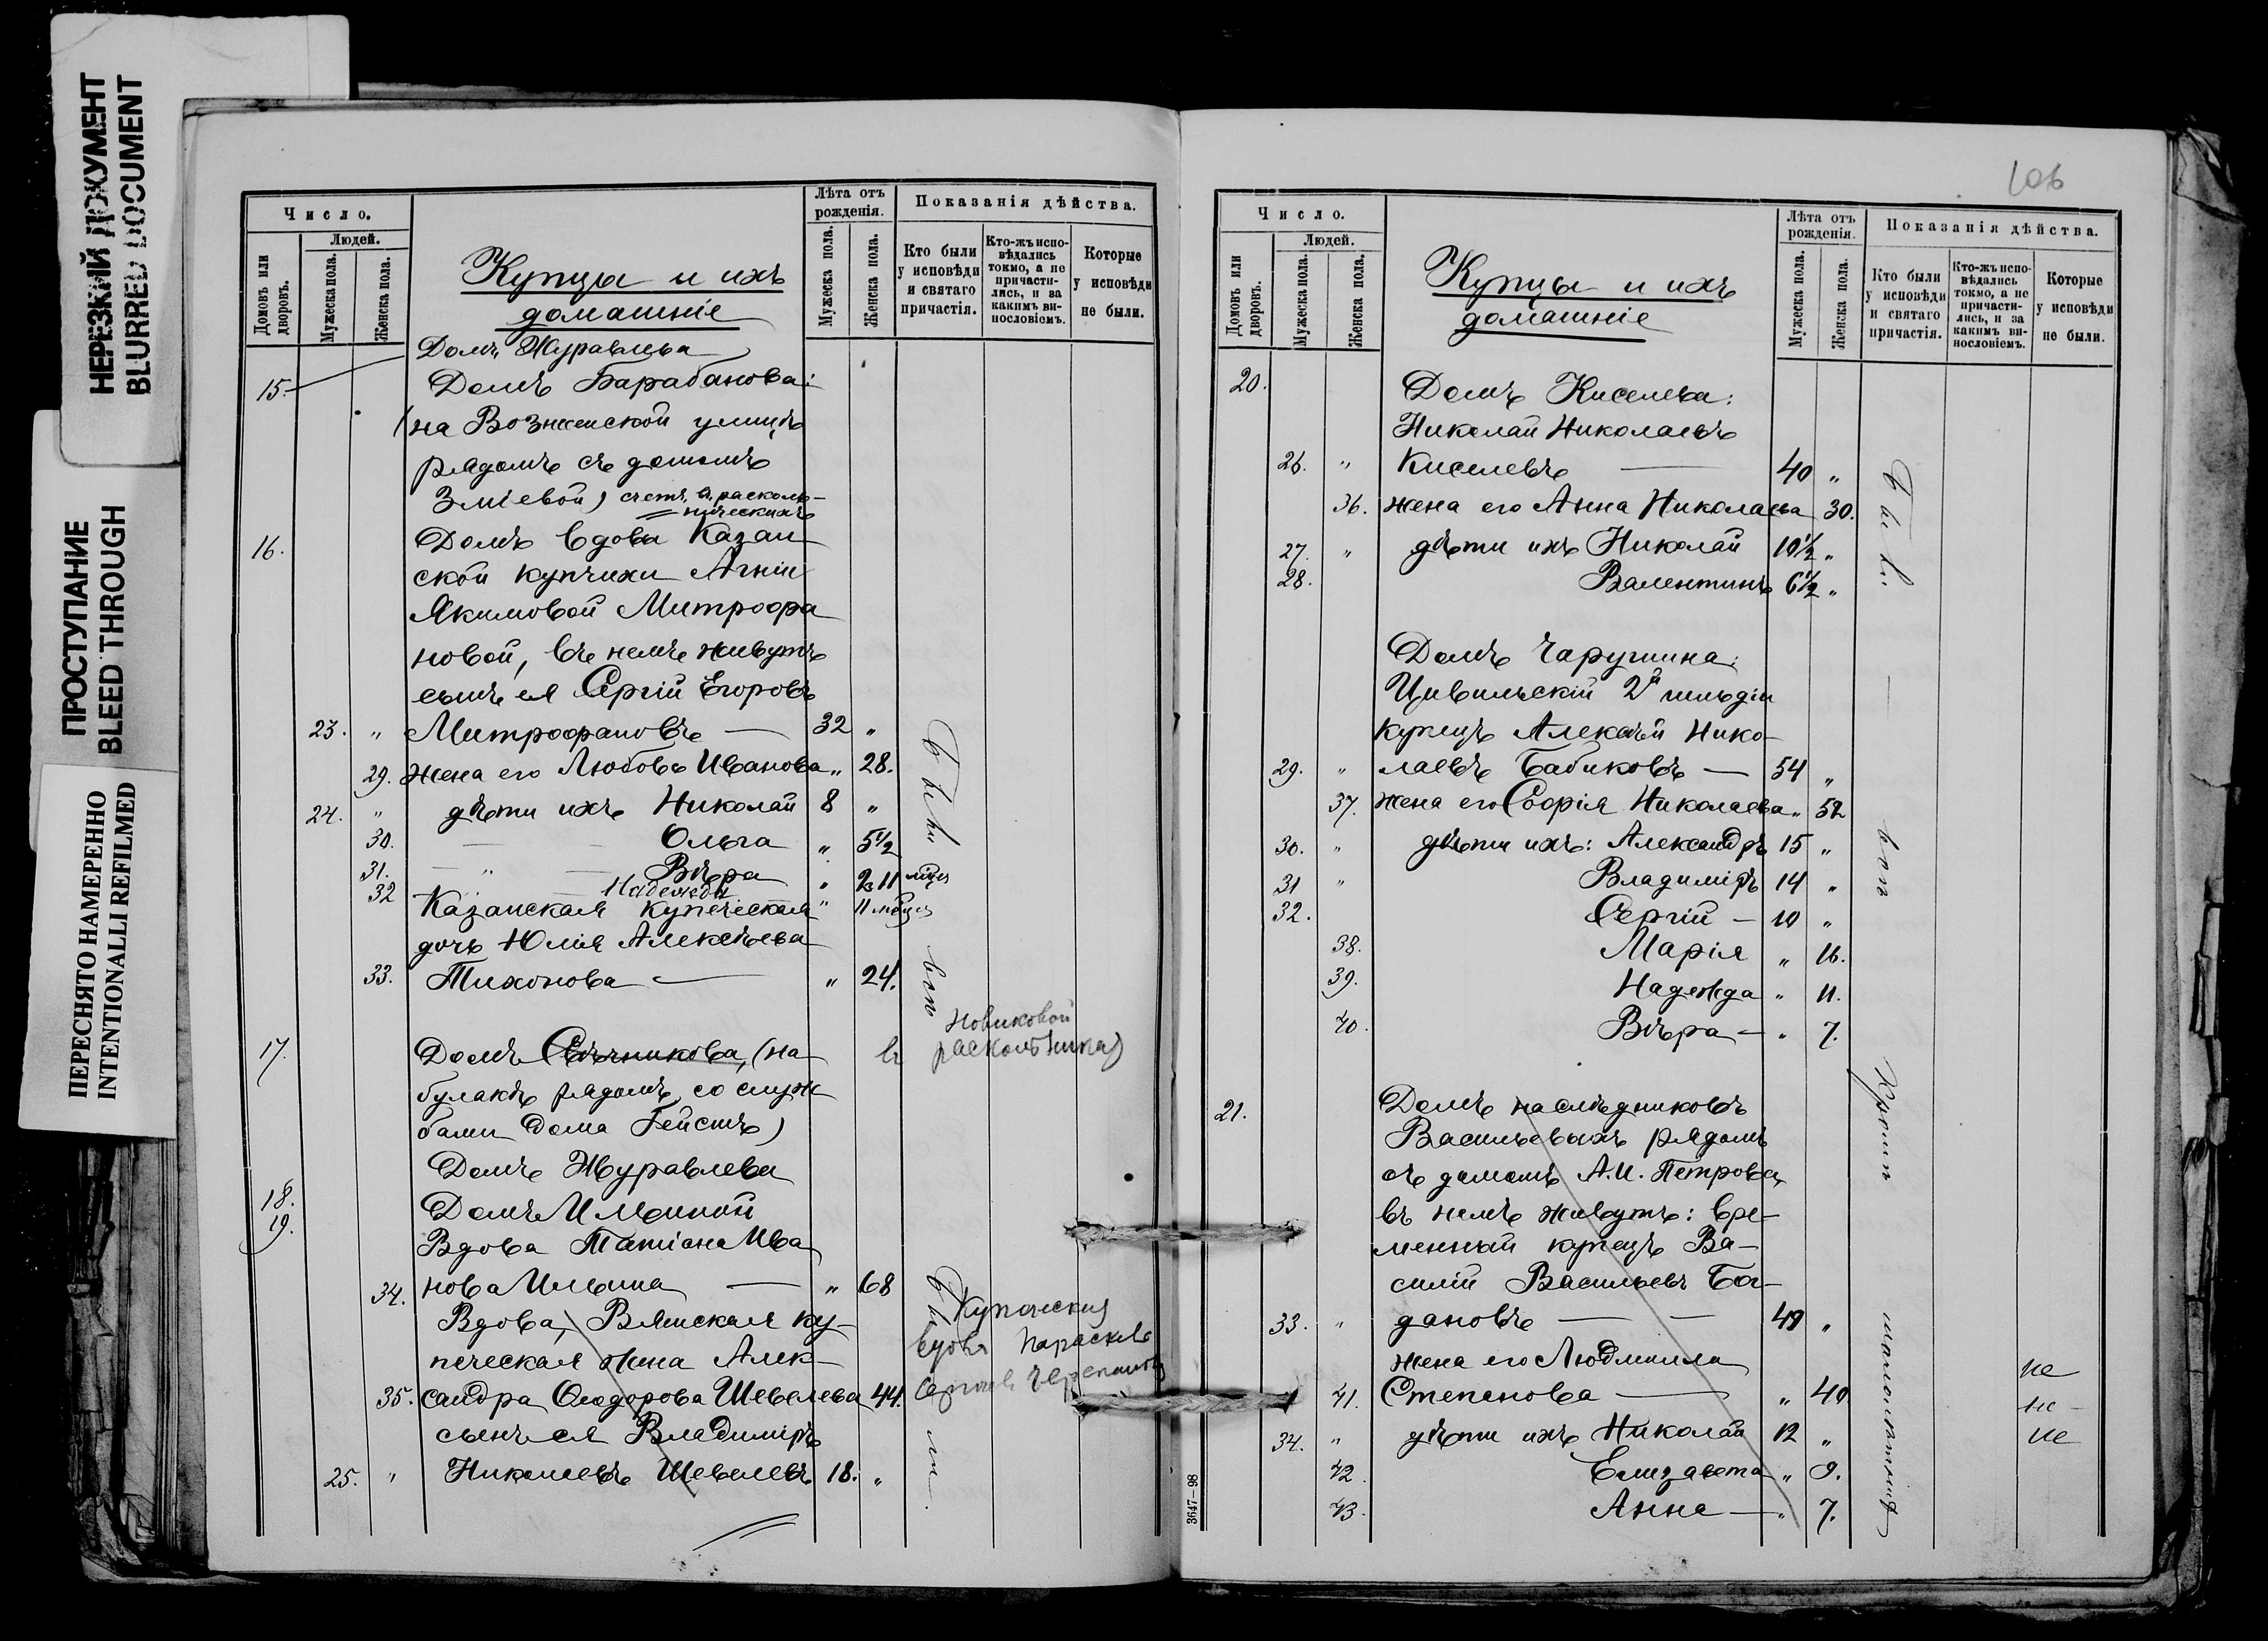 НЕРЕЗКИЙ ДОКУМЕНТ
BLURRED DOCUMENT
ПРОСТУПАНИЕ
BLEED THROUGH
ПЕРЕСНЯТО НАМЕРЕННО
INTENTIONALLI REFILMED
Число.
Людей.
Домовъ или дворовъ.
Мужеска пола.
Женска пола.
Купцы и ихъ
домашніе
Лѣта отъ рожденія.
Мужеска пола.
Женска пола.
Показанія дѣйства.
Кто были у исповѣди и святаго причастія.
Кто-жъ исповѣдались токмо, а не причастились, и за какимъ винословіемъ.
Которые у исповѣди не были.
Домъ Журавлева
15. Домъ Барабанова:
(на Вознесенской улицѣ
рядомъ съ домомъ
Зміевой) счет. въ расколь-
ническихъ
16. Домъ вдовы Казан
ской купчихи Агніи
Якимовой Митрофа
новой, въ немъ живутъ
сынъ ея Сергій Егоровъ
23. " Митрофановъ — 32 "
29. жена его Любовь Иванова " 28.
24. " дѣти ихъ Николай 8 "
30. Ольга " 5½
31. Вѣра " 2 11 мѣсяц
32 Надежда " 11 мѣсяц
Казанская купеческая
дочь Юлія Алексѣева
33. Тихонова — " 24.
были
17. Домъ Свѣчникова, (на
Новиковой
раскольника)
булакѣ рядомъ со служ
бами дома Гейстъ)
Домъ Журавлева
18.
19. Домъ Ильиной
Вдова Татіана Ива
34. нова Ильина — " 68
Вдова, Вятская ку-
печеская жена Алек-
35. сандра Ѳеодорова Шевелева 44.
Купеческая
вдова Параскева
сынъ ея Владиміръ
25. " Николаевъ Шевелевъ 18. "
106
Число.
Людей.
Домовъ или дворовъ.
Мужеска пола.
Женска пола.
Купцы и ихъ
домашніе
Лѣта отъ рожденія.
Мужеска пола.
Женска пола.
Показанія дѣйства.
Кто были у исповѣди и святаго причастія.
Кто-жъ исповѣдались токмо, а не причастились, и за какимъ винословіемъ.
Которые у исповѣди не были.
20. Домъ Киселева:
Николай Николаевъ
26. " Киселевъ — 40 "
36. жена его Анна Николаева 30.
27. " дѣти ихъ Николай 10½ "
28. Валентинъ 6½ "
Были
Домъ Чарушина:
Цивильскій 2й гильдіи
купецъ Алексѣй Нико-
29. " лаевъ Бабиковъ — 54 "
37. жена его Софія Николаева " 52
30. " дѣти ихъ: Александръ 15 "
31 " Владиміръ 14 "
32. Сергій — 10 "
38. Марія " 16.
39. Надежда " 11.
40. Вѣра — " 7.
кромѣ
21. Домъ наслѣдниковъ
Васильевыхъ рядомъ
съ домомъ А.И. Петрова,
въ немъ живутъ: вре-
менный купецъ Ва-
силій Васильевъ Бог-
33. " дановъ — — 49 "
жена его Людмила
не
41. Степанова — " 40
не
34. " дѣти ихъ Николай 12 "
не
42. Елизавета " 9.
43. Анна — " 7.
3647—98